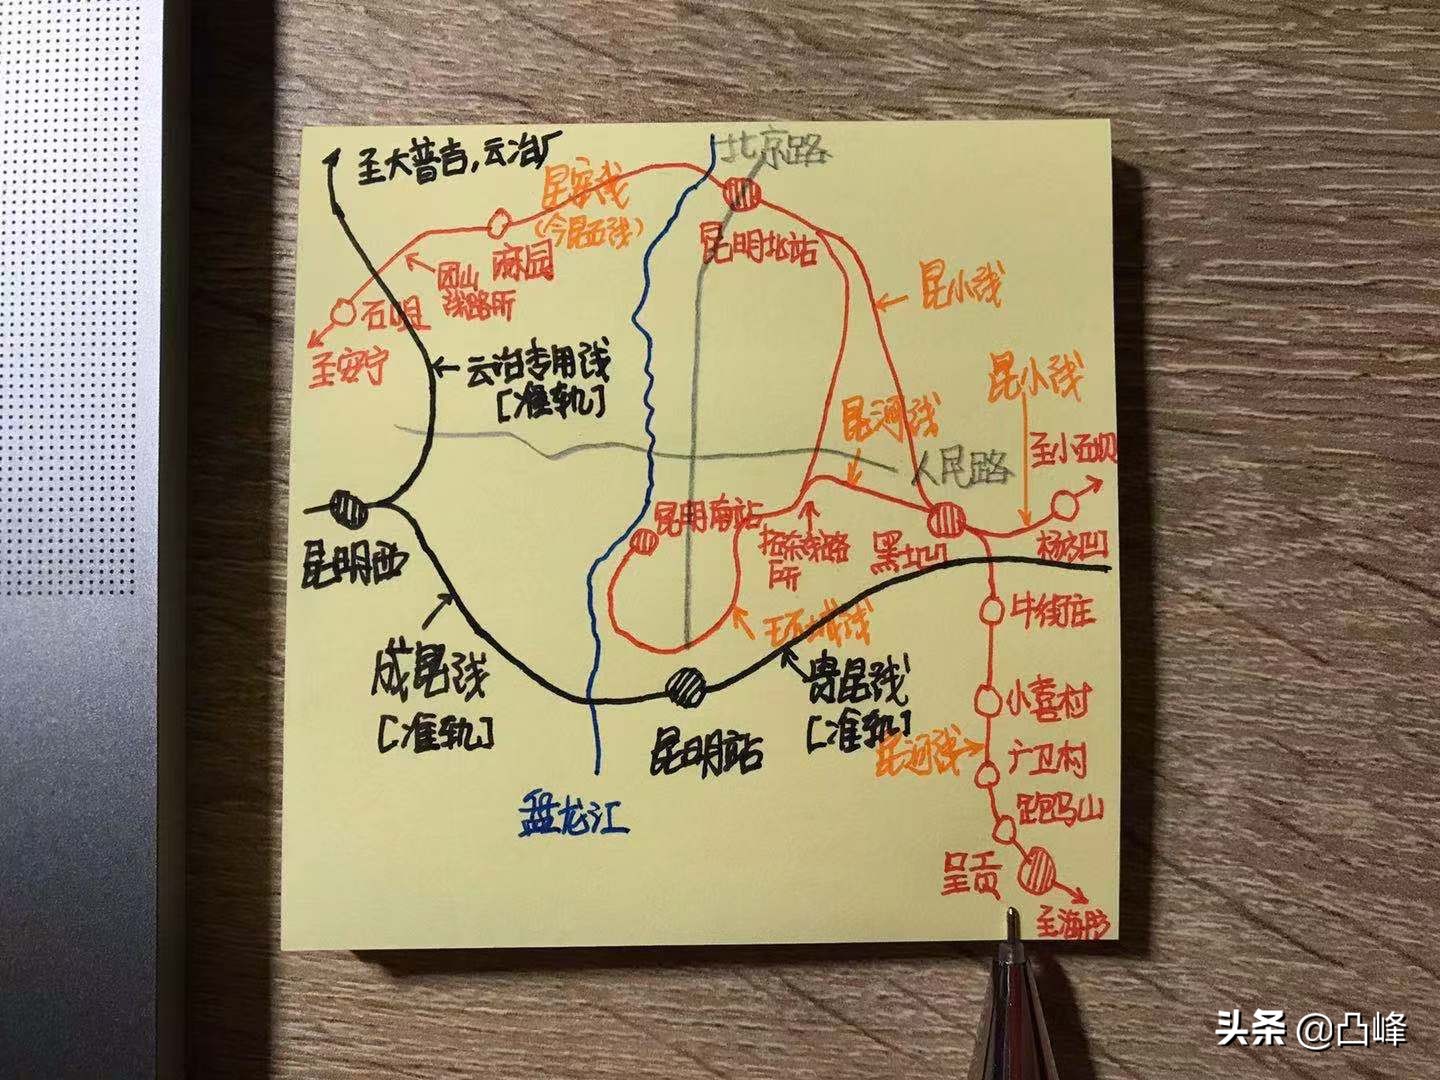 至大普吉,云冶厂
北京路
昆安线
(今昆石线)
昆明北站
麻园
团山
线路所
石咀
至安宁
昆小线
云冶专用线
[准轨]
昆小线
昆河线
至小石坝
人民路
昆明南站
拓东线路
所
黑土凹
杨方凹
昆明西
牛街庄
环城线
成昆线
[准轨]
贵昆线
[准轨]
小喜村
昆明站
昆河线
广卫村
跑马山
盘龙江
呈贡
至海防
头条 @凸峰